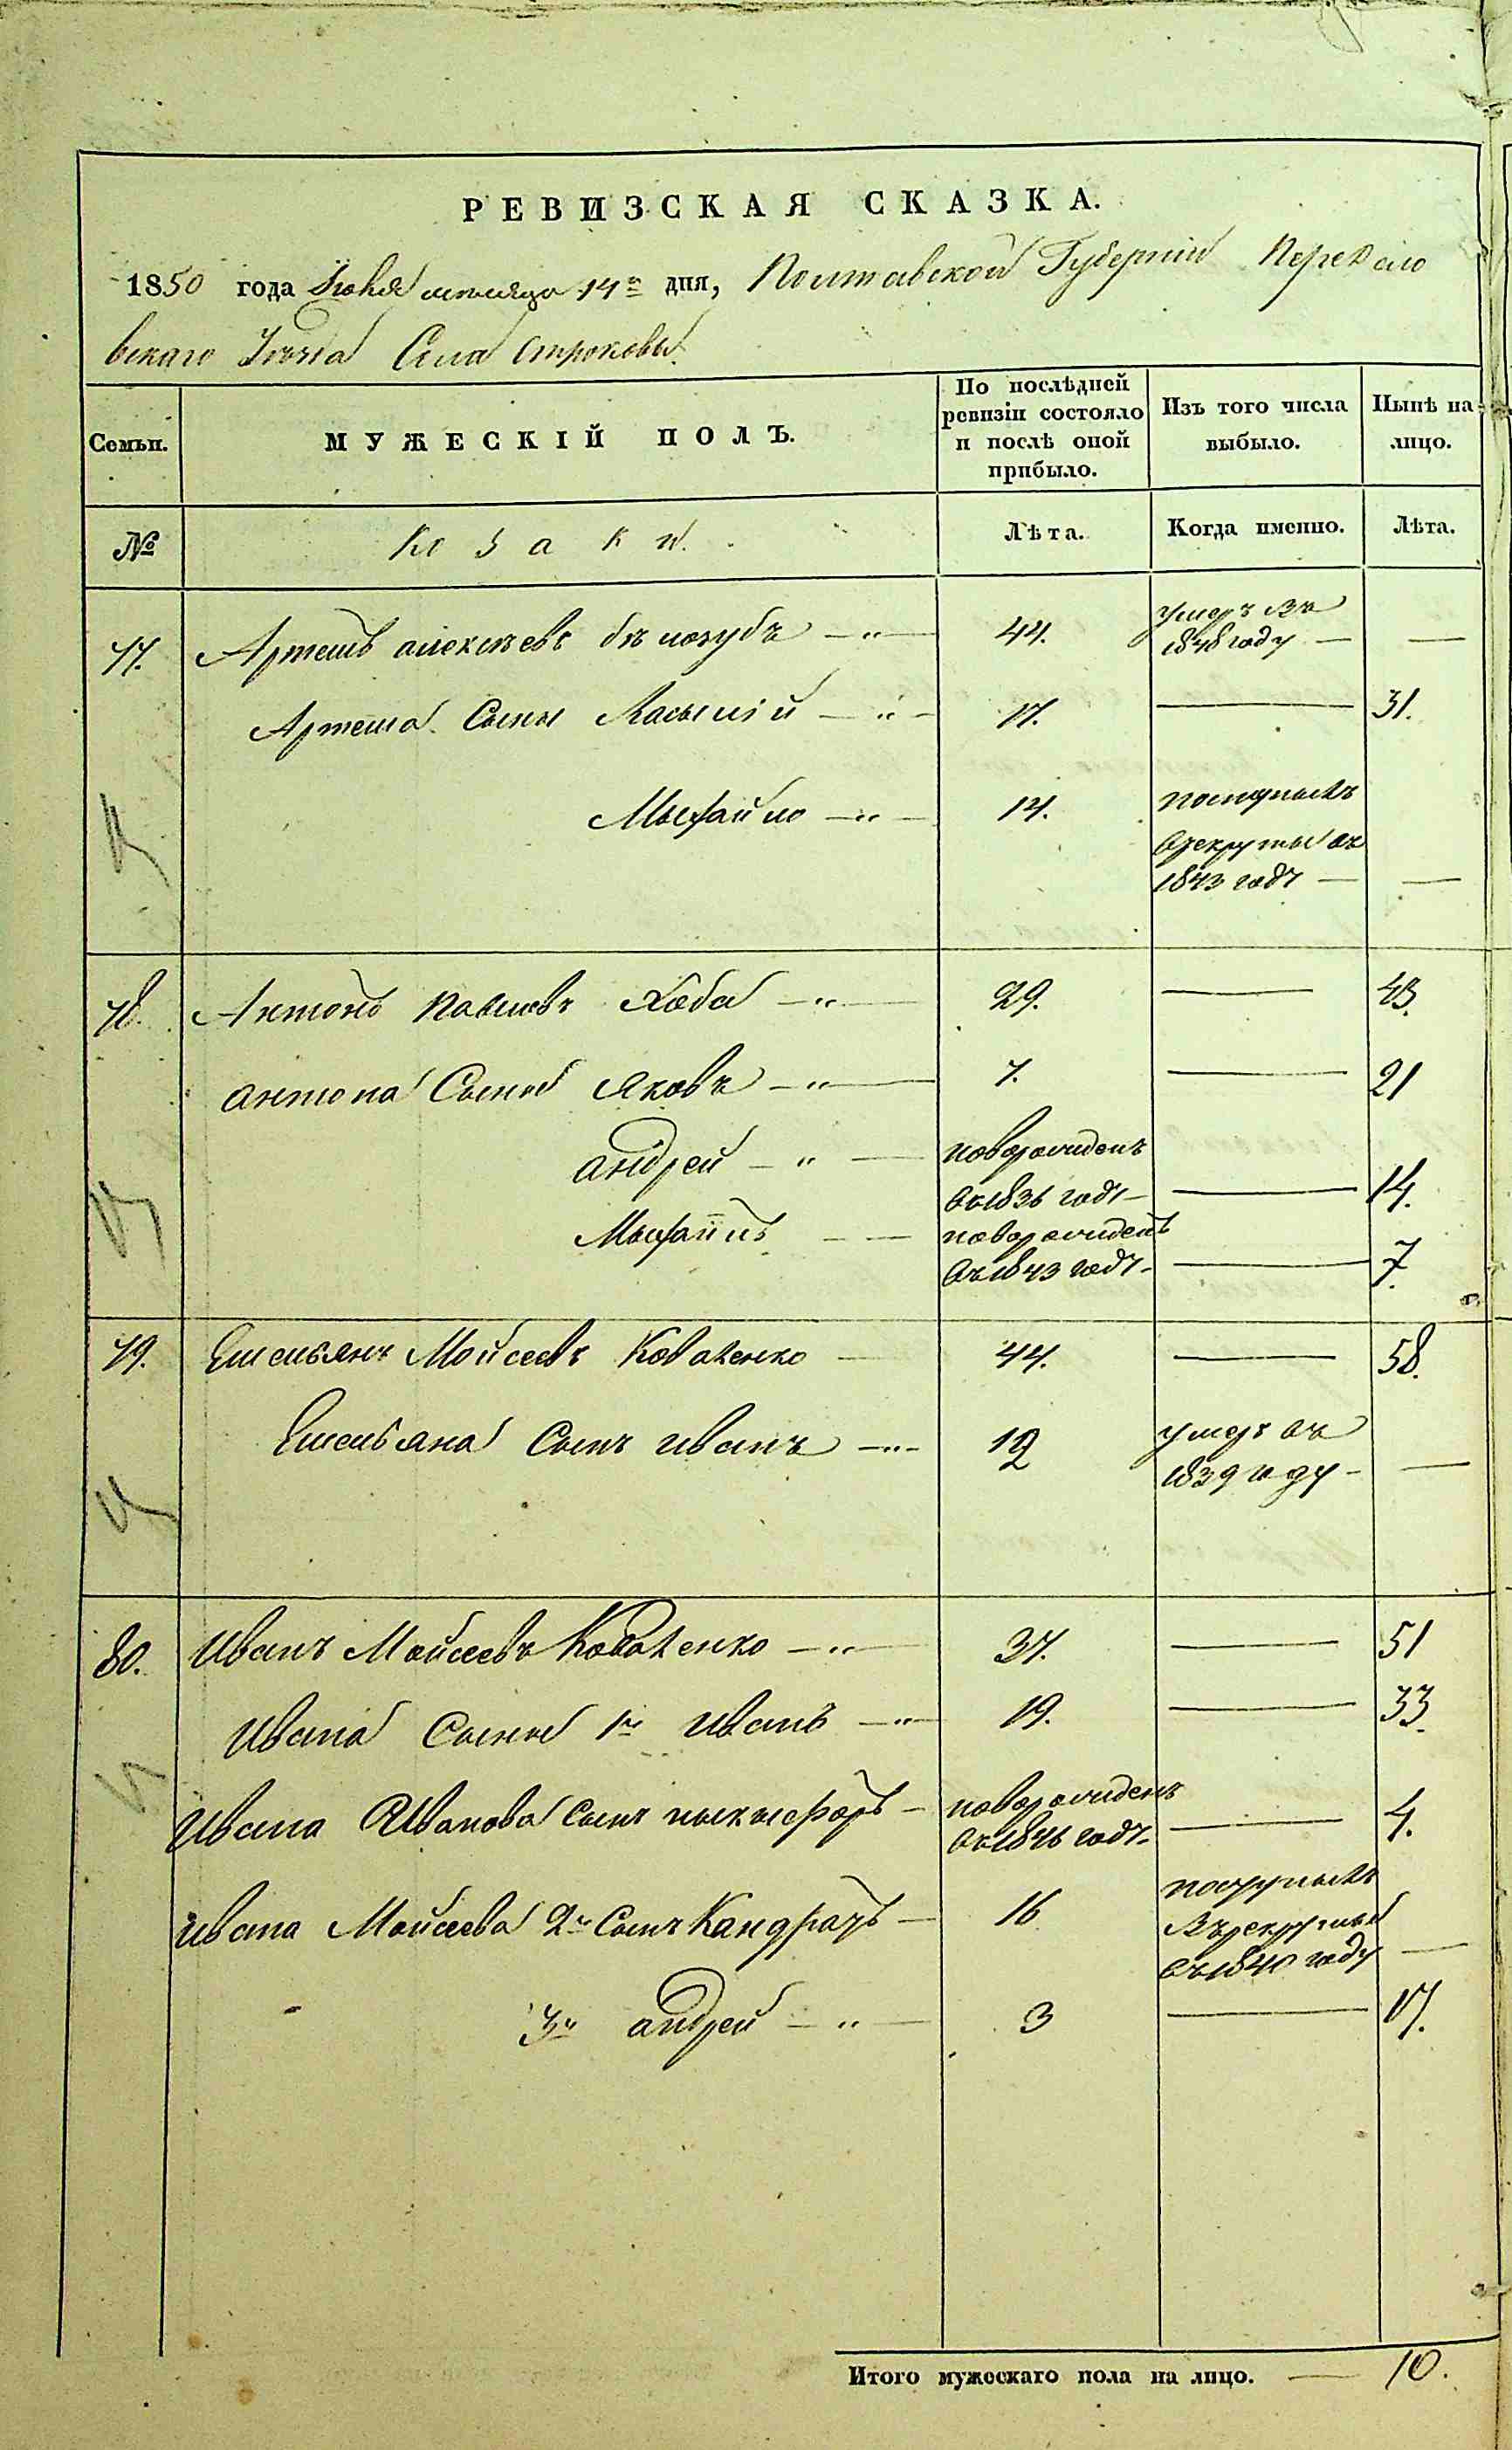 РЕВИЗСКАЯ СКАЗКА.
1850 года Июня месяца 14го дня, Полтавской Губерніи Переясло
вскаго Уезда Села Строковы.
Семьи.
МУЖЕСКІЙ ПОЛЪ.
По послѣдней ревизіи состояло и послѣ оной прибыло.
Изъ того числа выбыло.
Нынѣ на лицо.
№
Козаки.
Лѣта.
Когда именно.
Лѣта.
77. Артемъ алексѣевъ бѣлозубъ — 44. умеръ въ 1848 году — —
Артема Сыны Васылій — 17. — 31.
Мыхайло — 14. поступилъ врекруты въ 1843 годѣ — —
78. Антонъ Павловъ Хоба — 29. — 43.
антона Сыны яковъ — 7. — 21
андрей — новорожденъ въ 1836 годѣ — 14.
Мыхаилъ — новорожденъ въ 1843 годѣ — 7.
79. Емельянъ Мойсеевъ Коваленко — 44. — 58.
Емельяна Сынъ иванъ — 12 умеръ въ 1839 году — —
80. иванъ Мойсеевъ Коваленко — 37. — 51
ивана Сыны 1й иванъ — 19. — 33.
ивана Иванова Сынъ ныкыфоръ — новорожденъ въ 1846 годѣ — 4.
ивана Мойсеева 2й Сынъ Кандратъ — 16 поступилъ Въ рекруты въ 1840 году —
3й андрей — 3 — 17.
Итого мужескаго пола на лицо. — 10.